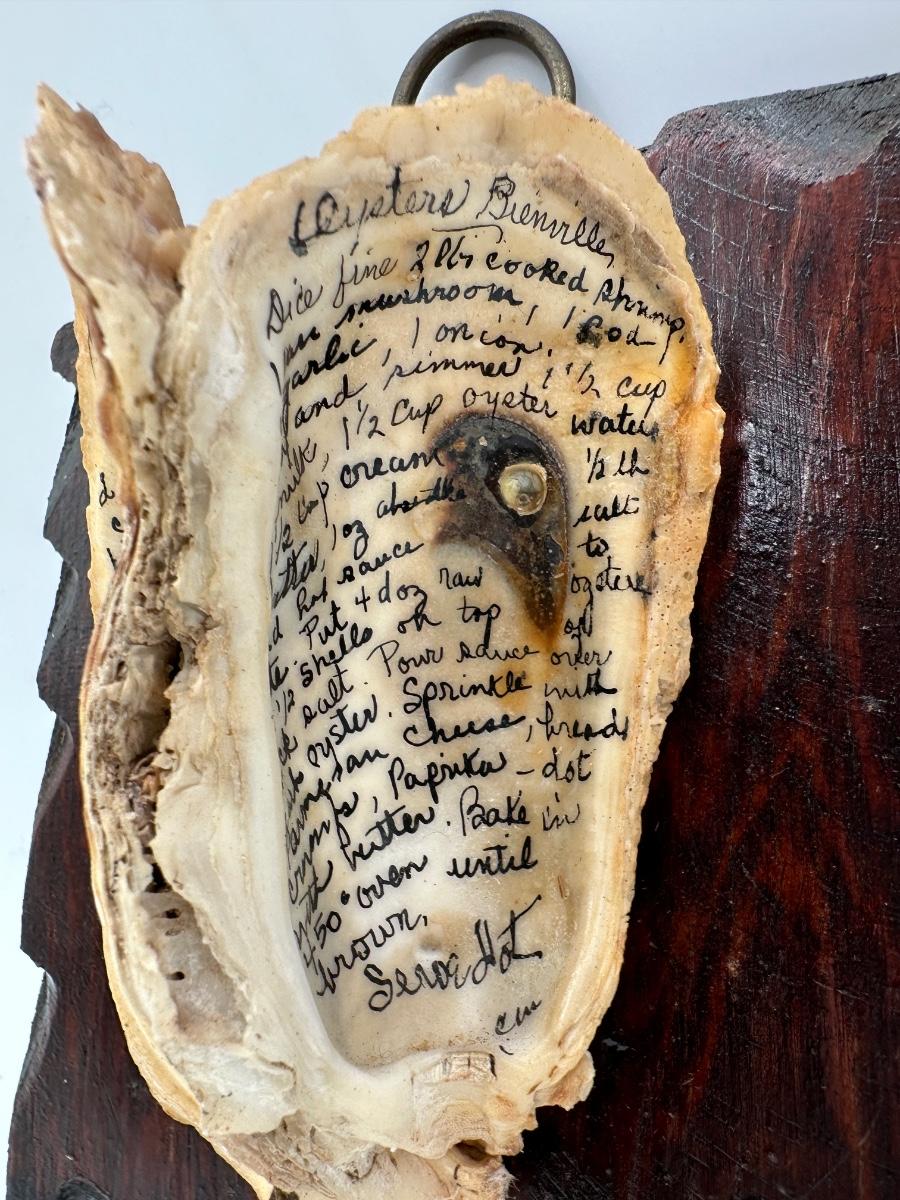 Oysters Bienville
Dice fine 2 lbs cooked shrimp,
mushroom, 1 pod
garlic, 1 onion.
and simmer, 1 1/2 cup
milk, 1 1/2 cup oyster water
1/2 cup cream 1/2 lb
1 oz absinthe salt
hot sauce to
Put 4 doz raw oysters
1/2 shells on top of
salt. Pour sauce over
oyster. Sprinkle with
Parmesan cheese, bread
crumbs, Paprika - dot
with butter. Bake in
450° oven until
brown.
Serve Hot
cm